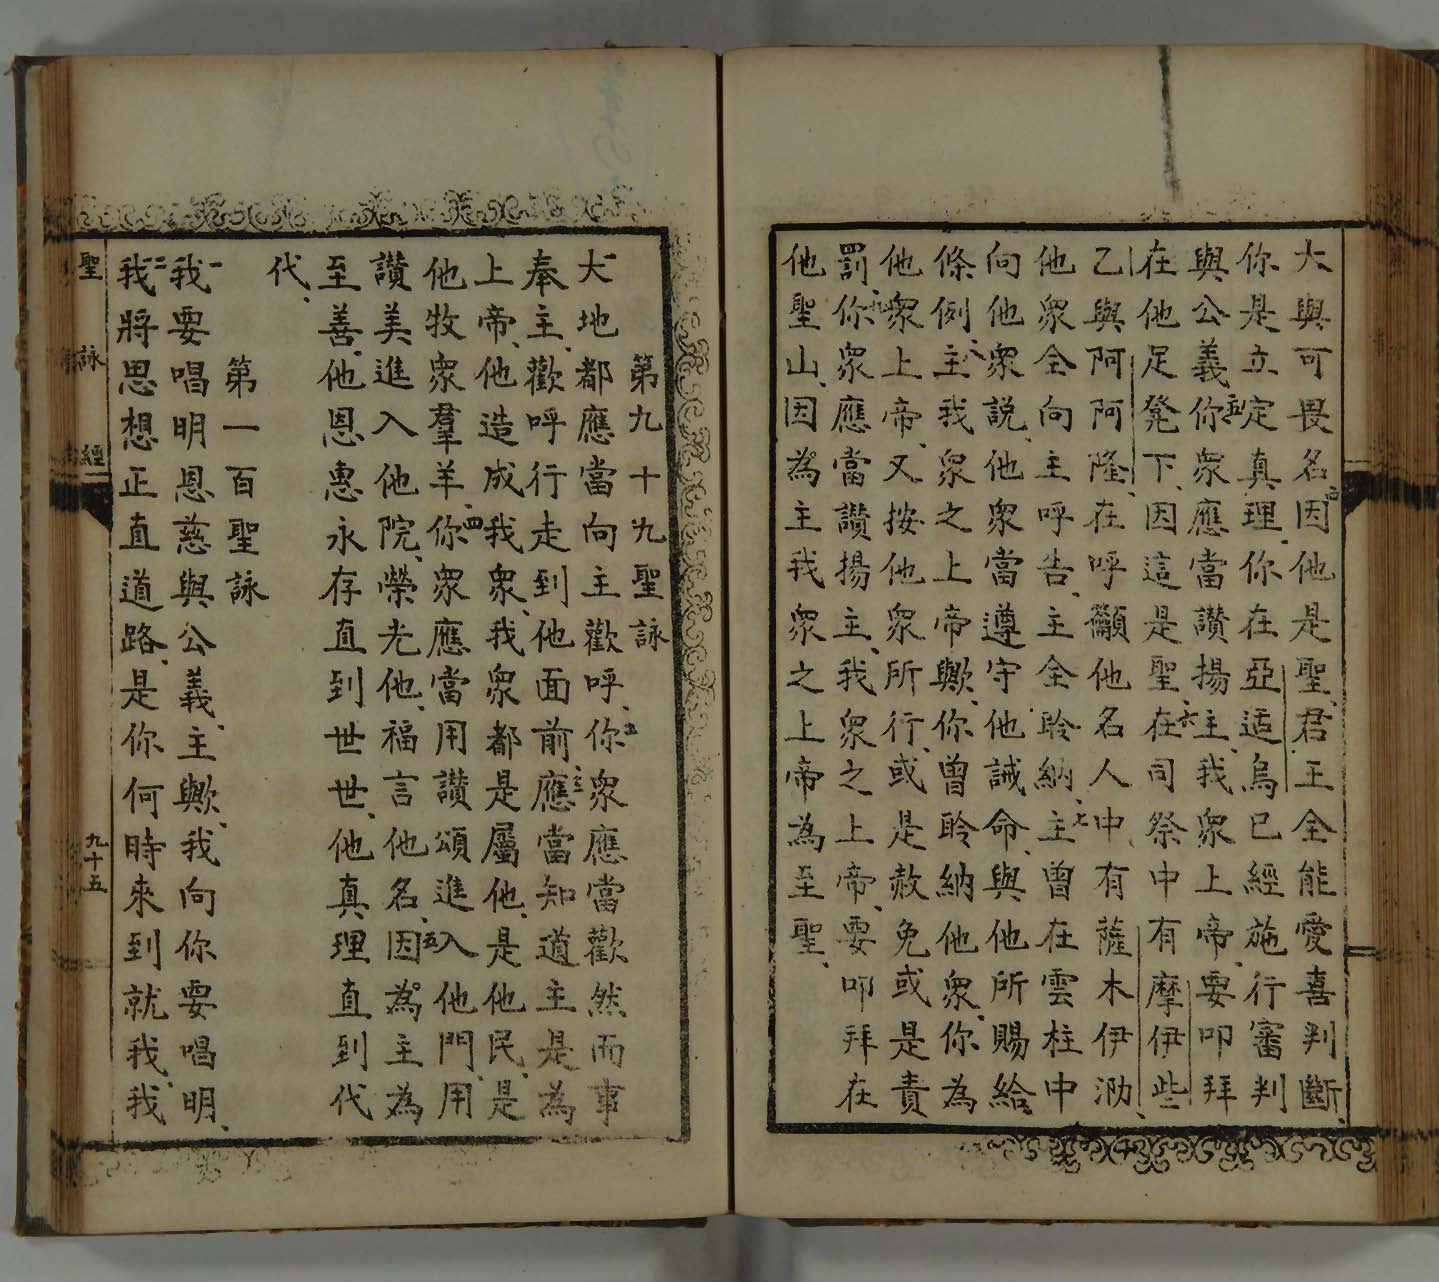 大與可畏名、四因他是聖、君王全能愛喜判斷、
你是立定真理、你在亞适烏已經施行審判
與公義、五你衆應當讃揚主、我衆上帝、要叩拜
在他足凳下、因這是聖、六在司祭中有摩伊些
乙與阿阿隆、在呼籲他名人中有薩木伊泐、
他衆全向主呼告、主全聆納、七主曾在雲柱中
向他衆說、他衆當遵守他誡命、與他所賜給
條例、八主我衆之上帝歟、你曾聆納他衆、你為
他衆上帝、又按他衆所行、或是赦免或是責
罰、九你衆應當讃揚主、我衆之上帝、要叩拜在
他聖山、因為主我衆之上帝為至聖、
第九十九聖詠
一大地都應當向主歡呼、二你衆應當歡然而事
奉主、歡呼行走到他面前、三應當知道主是為
上帝、他造成我衆、我衆都是屬他、是他民、是
他牧衆羣羊、四你衆應當用讃頌進入他門、用
讃美進入他院、榮光他、福言他名、五因為主為
至善、他恩惠永存直到世世、他真理直到代
代、
第一百聖詠
一我要唱明恩慈與公義、主歟、我向你要唱明、
二我將思想正直道路、是你何時來到就我、我
聖詠經
九十五